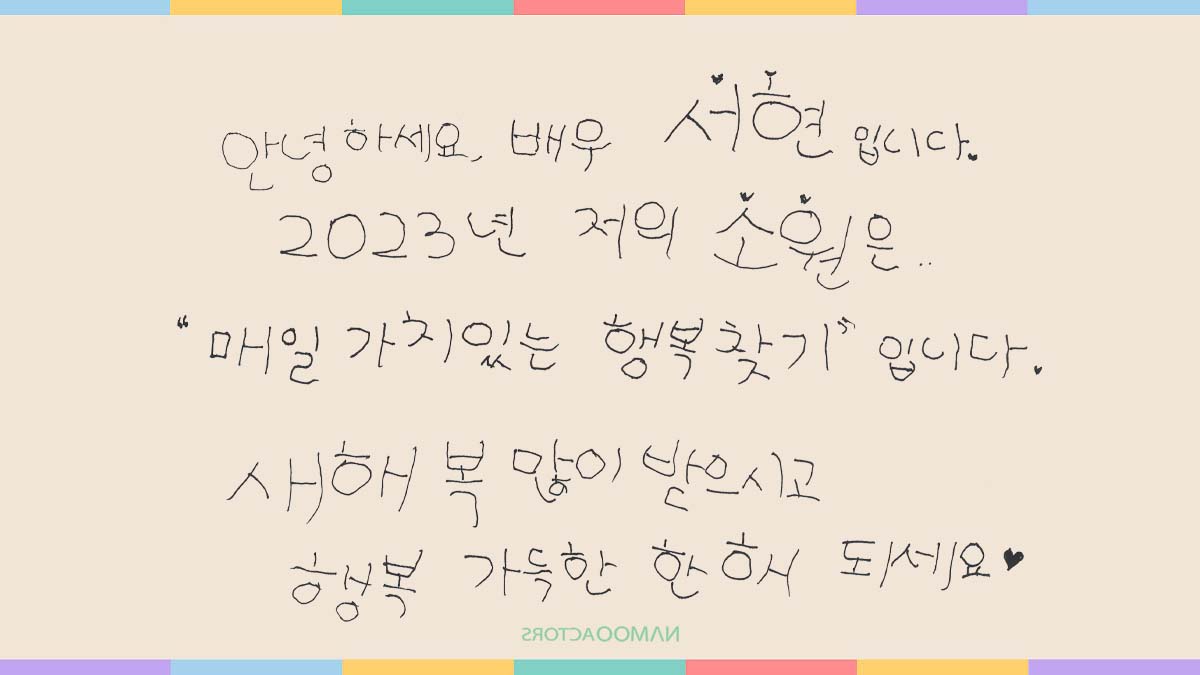 안녕하세요, 배우 서현 입니다.
2023년 저의 소원은..
“매일 가치있는 행복찾기” 입니다.
새해 복 많이 받으시고
행복 가득한 한 해 되세요♥
NAMOOACTORS